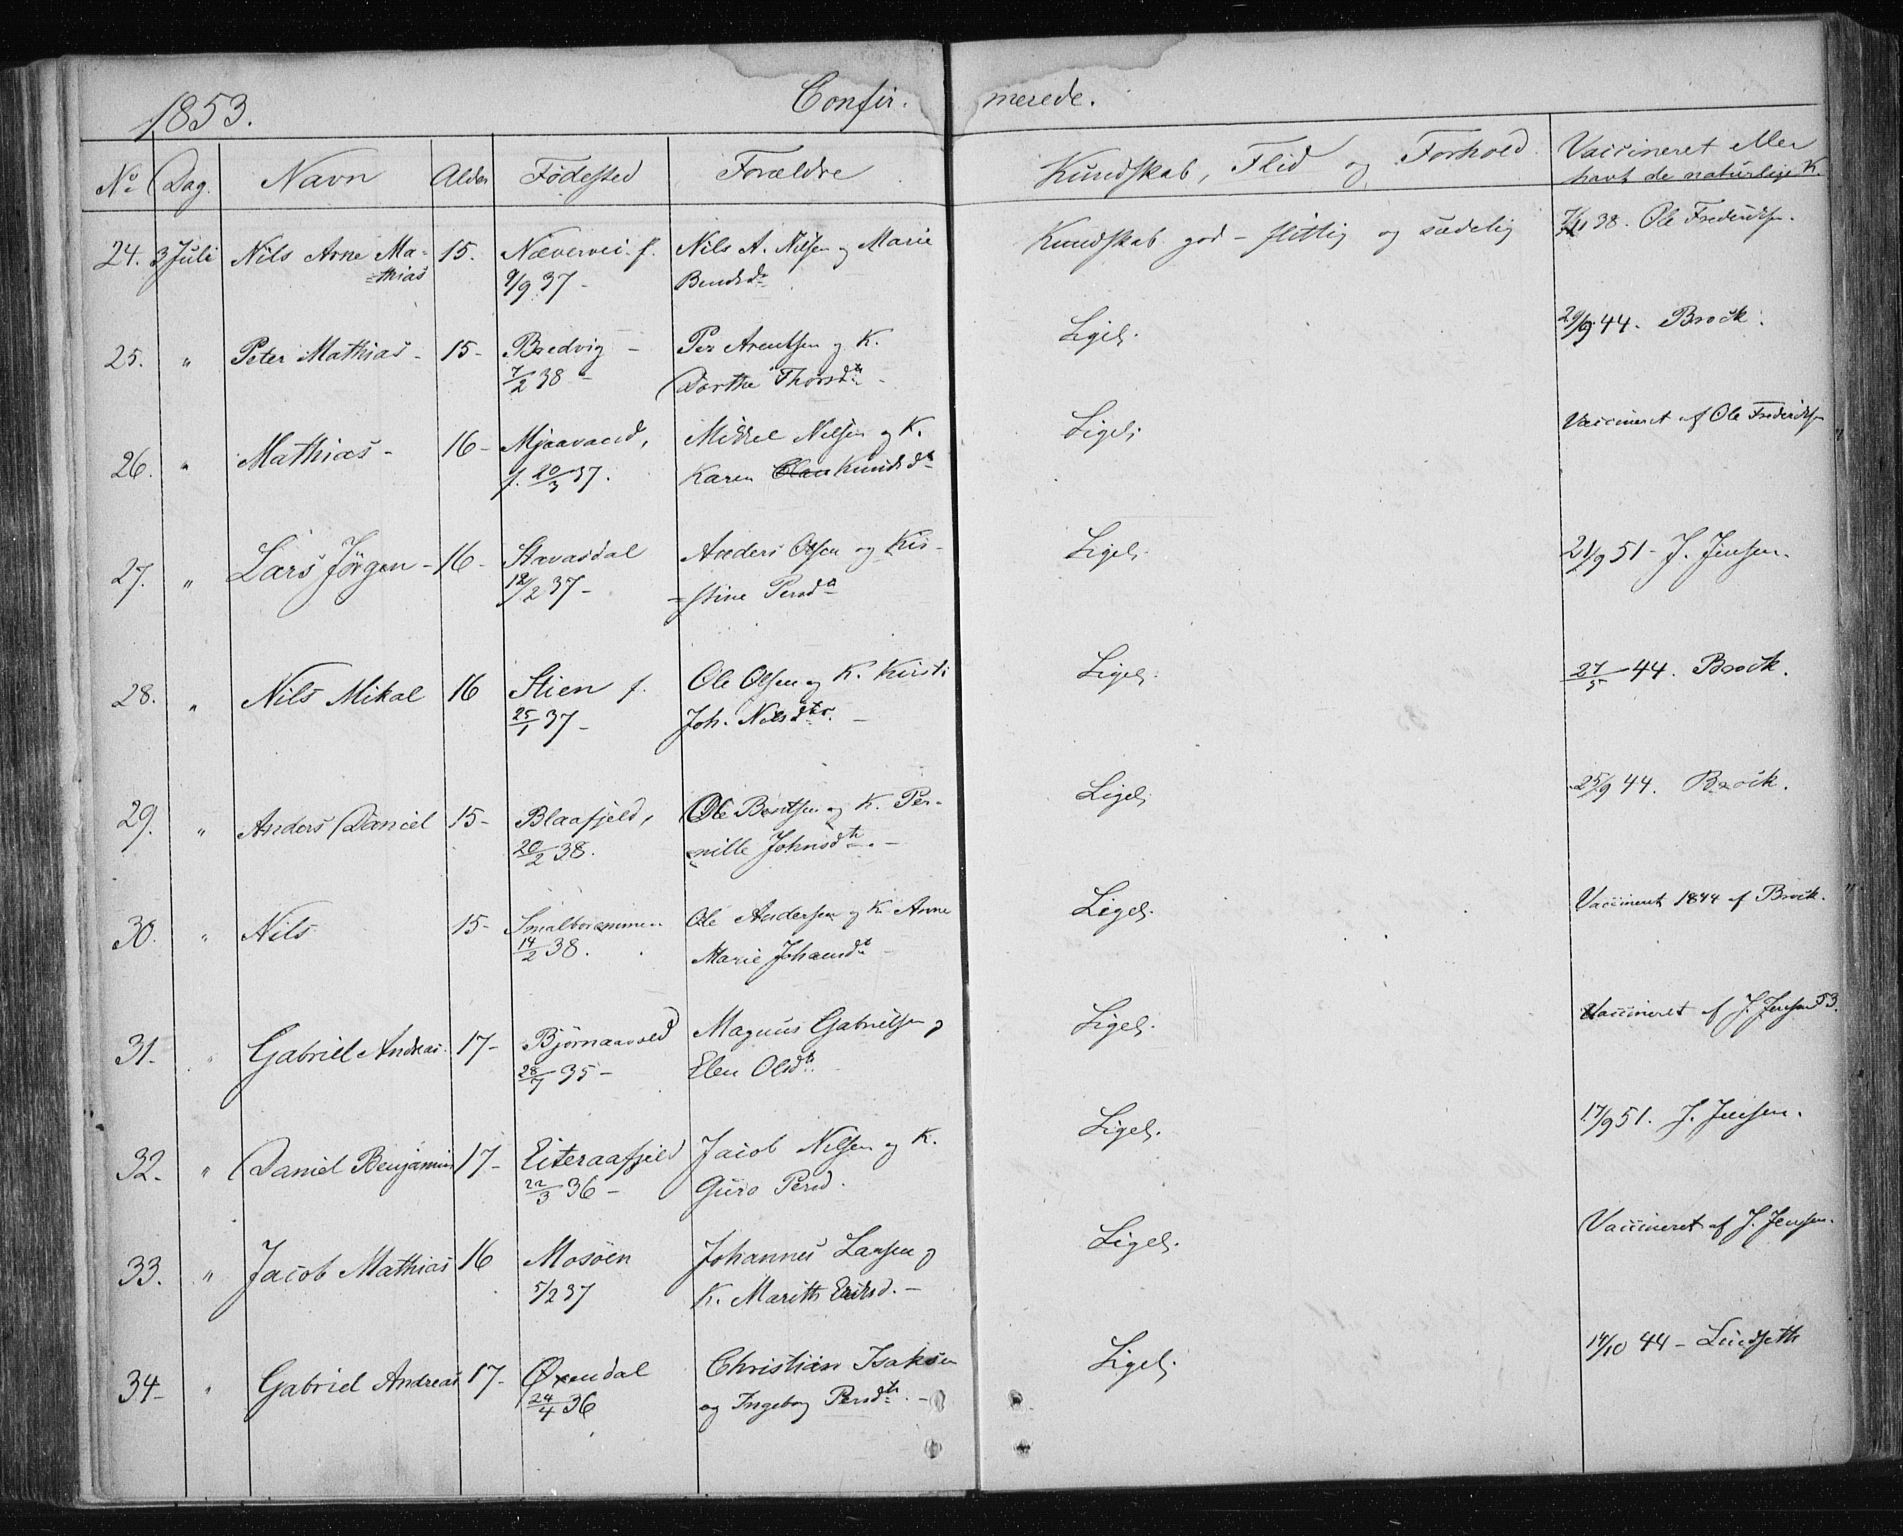 1853. Confir- merede.
No Dag. Navn Alder Fødested Forældre Kundskab, Flid og Forhold Vaccineret eller
havt de naturlige K.
24. 3 Juli Nils Arne Ma- 15. Nævernei f. Nils A. Nilsen og Marie Kundskab god - flittig og sædelig 38. Ole Frederiksn.
=thias 9/9 37 - Bendsdr
25. " Peter Mathias - 15 - Bredvig - Per Arentsen og K. Ligel. 29/9 44. Brock.
7/2 38 - Dorthe Thorsdtr -
26. " Mathias - 16 - Mjaavand, Mikkel Nilsen og K. Ligel. Vaccineret af Ole Frederiksn
f. 20/3 37. Karen Knudsdtr
27. " Lars Jörgen - 16 - Stavasdal Anders Olsen og Kir- Ligel. 21/9 51 - J. Jensen.
12/2 37 - =stine Persdtr
28. " Nils Mikal 16 Stien f. Ole Olsen og K. Kirsti Ligel. 27/5 - 44. Brock.
25/1 37 - Joh. Nilsdtr. -
29. " Anders Daniel 15 - Blaafjeld, Ole Bentsen og K. Per- Ligel. 25/9 44. Brock.
20/2 38. =nille Johnsdtr. -
30. " Nils 15 - Ole Andersen og K. Anne Ligel. Vaccineret 1844 af Brock.
14/2 38. Marie Johansdtr -
31. " Gabriel Andreas. 17 - Bjørnaavold Magnus Gabrielsen og Ligel. Vaccineret af J. Jensen 53.
28/7 35 - Elen Olsdtr.
32. " Daniel Benjamin 17 - Eiteraafjeld Jacob Nilsen og K. Ligel. 17/9 51. J. Jensen.
22/3 36 - Guro Persd.
33. " Jacob Mathias 16 Mosøen Johannes Larsen og Ligel. Vaccineret af J. Jensen.
5/2 37 K. Marith Eriksd. -
34 - " Gabriel Andreas 17 - Øxendal Christian Isaksen Ligel. 14/10 44 - Lindseth
24/4 36 og Ingeborg Persdtr. -